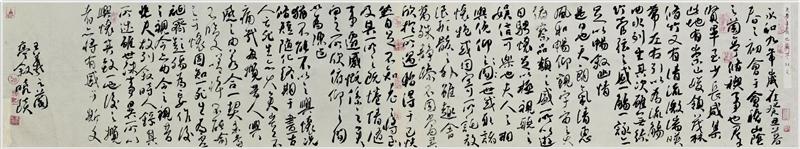 永和九年歲在癸丑暮
春之初會于會稽山陰
之蘭亭修禊事也群
賢畢至少長咸集
此地有崇山峻領茂林
脩竹又有清流激湍暎
帶左右引以為流觴
曲水列坐其次雖無絲
竹管弦之盛一觴一詠
足以暢敘幽情
是日也天朗氣清惠
風和暢仰觀宇宙之大
俯察品類之盛所以遊
目騁懷足以極視聽之
娛信可樂也夫人之相
與俯仰一世或取諸
懷抱或因寄所託放
浪形骸之外雖趣舍
萬殊靜躁不同當其欣
於所遇暫得於己快
然自足不知老之將至
及其所之既惓情隨
事遷感慨係之矣
向之所欣俛仰之間
以為陳迹
猶不能不以之興懷況
脩短隨化終期于盡古
人云死生亦大矣豈不
痛哉每攬昔人興
感之由若合一契未嘗
不臨文嗟悼不能喻
之於懷固知一死生為虛
誕齊彭殤為妄作後
之視今亦由今之視昔
悲夫故列敘時人錄其
所述雖世殊事異所以
興懷其致一也後之攬
者亦將有感於斯文
王羲之蘭
亭敘